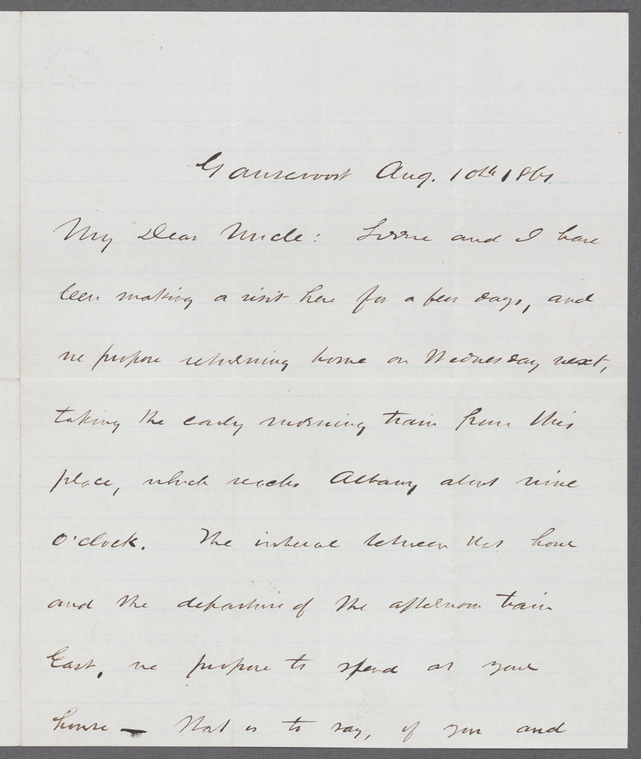 Gansevoort Aug. 10th 1861
My Dear Uncle: Lizzie and I have
been making a visit here for a few days, and
we propose returning home on Wednesday next,
taking the early morning train from this
place, which reaches Albany about nine
o'clock. The interval between that hour
and the departure of the afternoon train
East, we propose to spend at your
house — that is to say, if you and